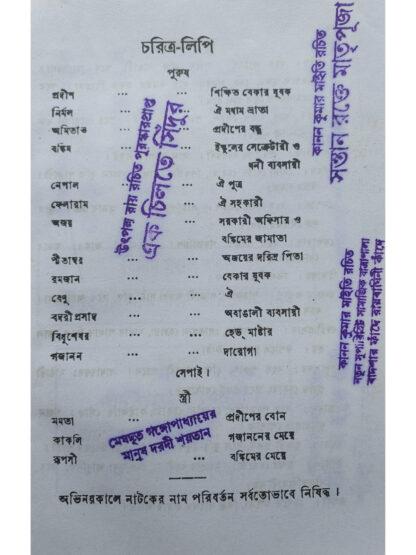 চরিত্র-লিপি
পুরুষ
প্রদীপ ... ... শিক্ষিত বেকার যুবক
নির্মল ... ঐ মধ্যম ভ্রাতা
অমিতাভ ... প্রদীপের বন্ধু
বঙ্কিম ... ইস্কুলের সেক্রেটারী ও
ধনী ব্যবসায়ী
নেপাল ... ঐ পুত্র
ফেলারাম ... ঐ সহকারী
অজয় ... সরকারী অফিসার ও
বঙ্কিমের জামাতা
পীতাম্বর ... ... অজয়ের দরিদ্র পিতা
রমজান ... ... বেকার যুবক
বেণু ... ... ঐ
বদরীপ্রসাদ ... ... অবাঙালী ব্যবসায়ী
বিধুশেখর ... ... হেড্ মাষ্টার
গজানন ... ... দারোগা
সেপাই।
স্ত্রী
মমতা ... ... প্রদীপের বোন
কাকলি ... গজাননের মেয়ে
রূপসী ... বঙ্কিমের মেয়ে
অভিনয়কালে নাটকের নাম পরিবর্তন সর্বতোভাবে নিষিদ্ধ।
উৎপল রায় রচিত পুরস্কারপ্রাপ্ত
এক চিলতে সিঁদুর
কানন কুমার মাইতি রচিত
সন্তান রক্তে মাতৃপূজা
কানন কুমার মাইতি রচিত
নতুন সুপারহিট সামাজিক যাত্রাপালা
বাদশার ফাঁদে রায়বাঘিনী কাঁদে
মেঘদূত গঙ্গোপাধ্যায়ের
মানুষ দরদী শয়তান